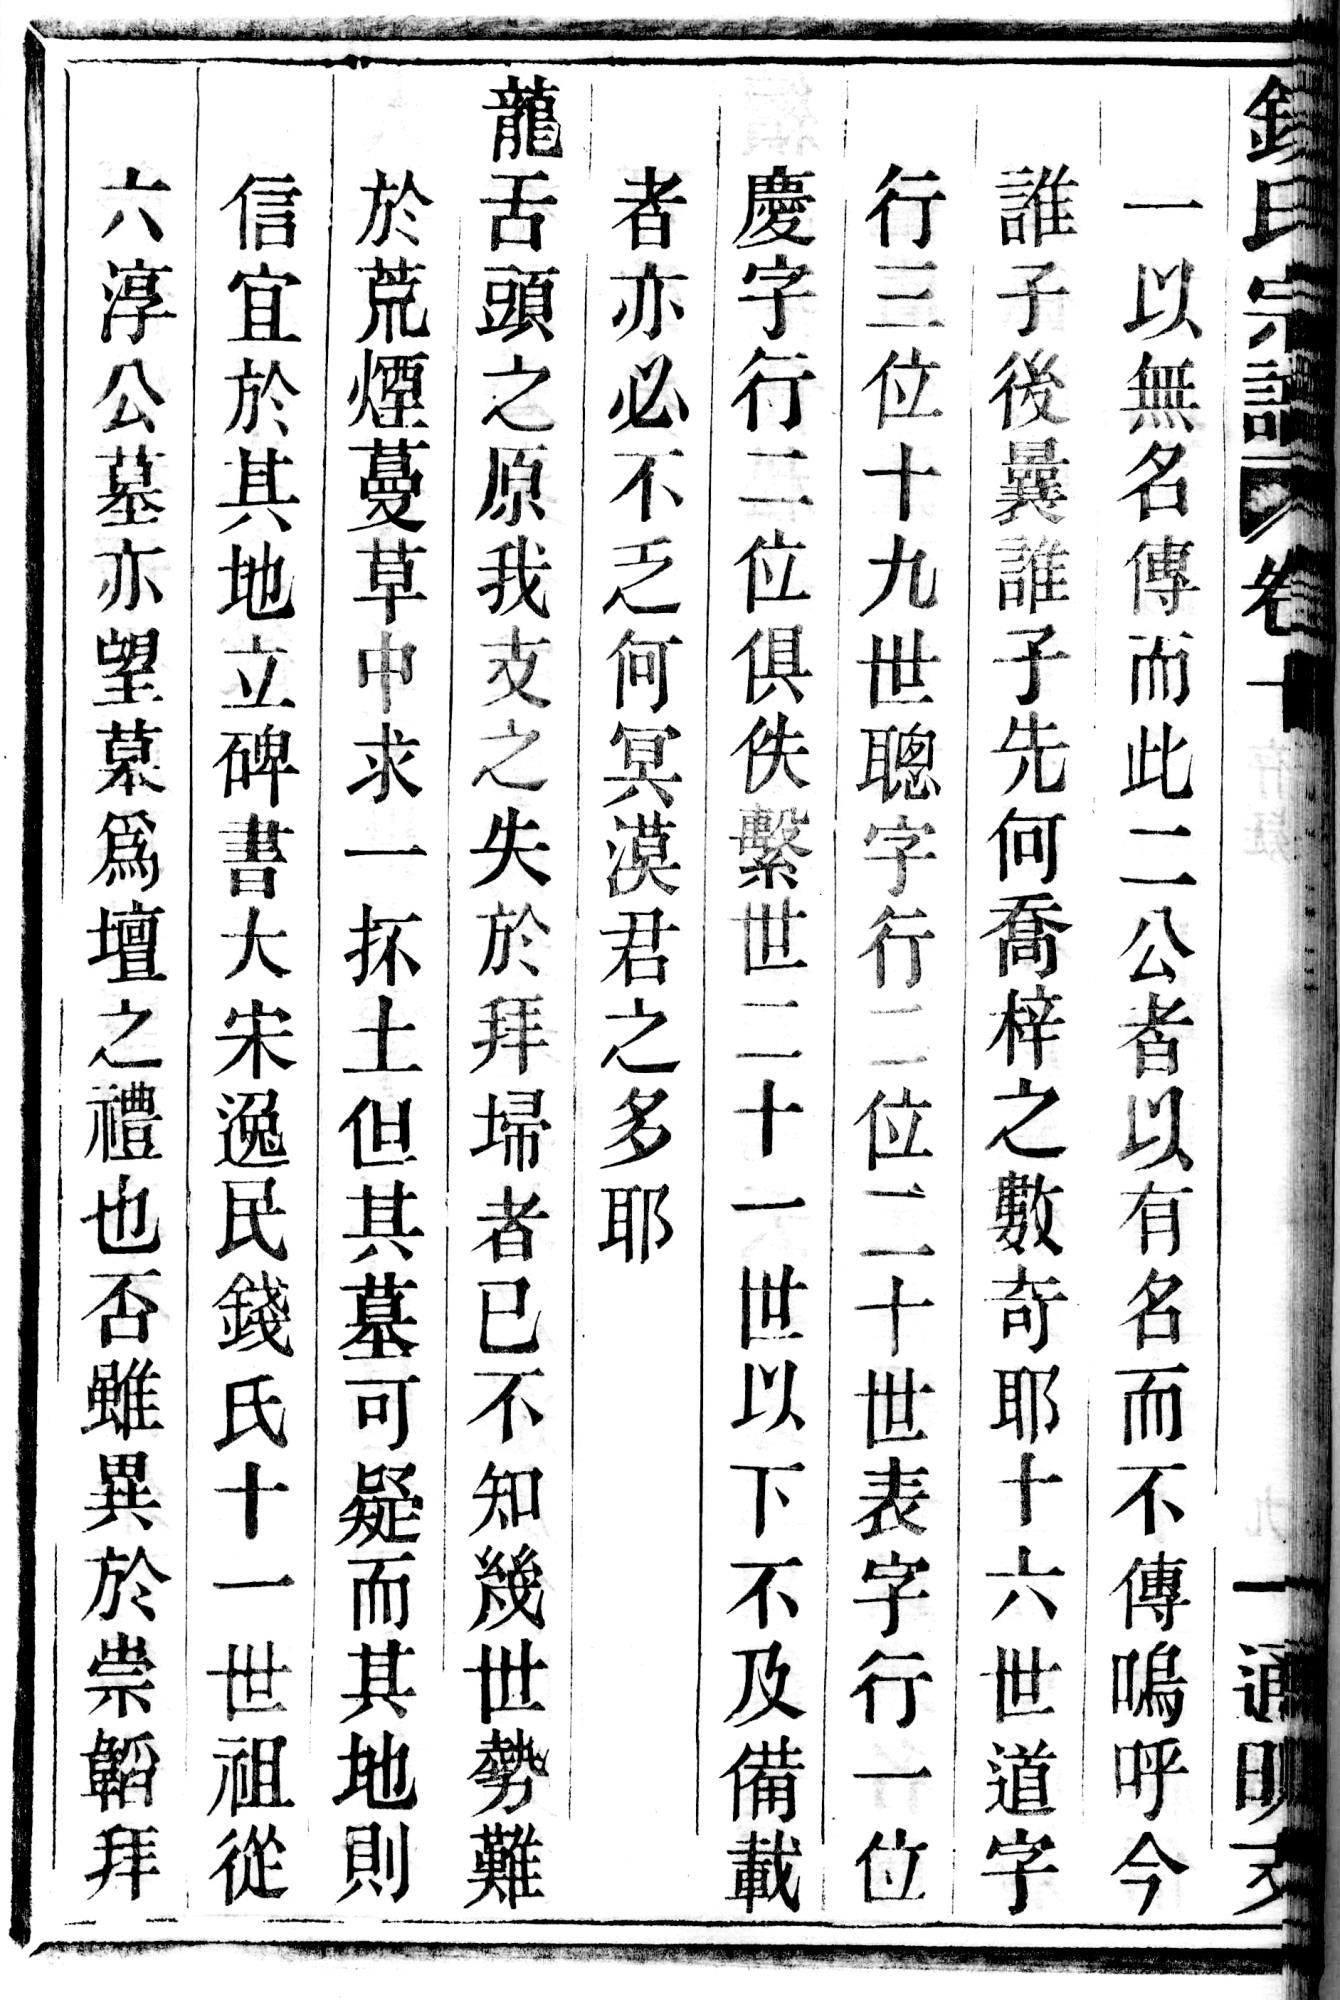 錢氏宗譜 卷十 一 通明支
一以無名傳而此二公者以有名而不傳嗚呼今
誰子後曩誰子先何喬梓之數奇耶十六世道字
行三位十九世聰字行二位二十世表字行一位
慶字行二位俱佚繫世二十一世以下不及備載
者亦必不乏何冥漠君之多耶
龍舌頭之原我支之失於拜埽者已不知幾世勢難
於荒煙蔓草中求一抔土但其墓可疑而其地則
信宜於其地立碑書大宋逸民錢氏十一世祖從
六淳公墓亦望墓爲壇之禮也否雖異於崇韜拜